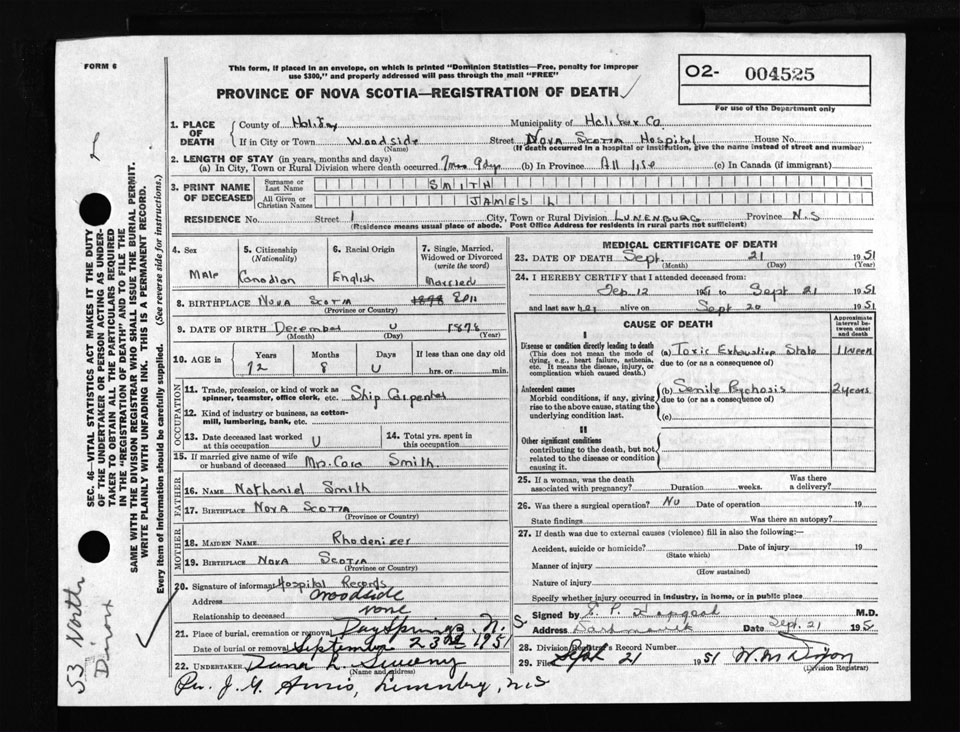 FORM 6
This form, if placed in an envelope, on which is printed "Dominion Statistics—Free, penalty for improper
use $300," and properly addressed will pass through the mail "FREE"
O2- 004525
For use of the Department only
PROVINCE OF NOVA SCOTIA—REGISTRATION OF DEATH
1. PLACE OF DEATH
County of Halifax Municipality of Halifax Co
If in City or Town Woodside Street Nova Scotia Hospital House No.
(Name) (If death occurred in a hospital or institution, give the name instead of street and number)
2. LENGTH OF STAY (in years, months and days)
(a) In City, Town or Rural Division where death occurred 7 mos 9 dys (b) In Province All life (c) In Canada (if immigrant)
3. PRINT NAME OF DECEASED
Surname or Last Name SMITH
All Given or Christian Names JAMES L
RESIDENCE No. Street 1 City, Town or Rural Division LUNENBURG Province N.S
(Residence means usual place of abode. Post Office Address for residents in rural parts not sufficient)
4. Sex Male
5. Citizenship (Nationality) Canadian
6. Racial Origin English
7. Single, Married, Widowed or Divorced (write the word) Married
8. BIRTHPLACE Nova Scotia
(Province or Country)
9. DATE OF BIRTH December U 1878
(Month) (Day) (Year)
10. AGE in Years Months Days If less than one day old
72 8 U hrs. or min.
OCCUPATION
11. Trade, profession, or kind of work as
spinner, teamster, office clerk, etc. Ship Carpenter
12. Kind of industry or business, as cotton-
mill, lumbering, bank, etc.
13. Date deceased last worked at this occupation U
14. Total yrs. spent in this occupation
15. If married give name of wife or husband of deceased Mrs. Cora Smith.
FATHER
16. NAME Nathaniel Smith
17. BIRTHPLACE Nova Scotia
(Province or Country)
MOTHER
18. MAIDEN NAME Rhodenizer
19. BIRTHPLACE Nova Scotia
(Province or Country)
20. Signature of informant Hospital Records
Address Woodside
Relationship to deceased none
21. Place of burial, cremation or removal Day Springs, N.S
Date of burial or removal September 23rd 1951
22. UNDERTAKER Dana L. Sweeny
(Name and address)
Per. J. G.
MEDICAL CERTIFICATE OF DEATH
23. DATE OF DEATH Sept. 21 1951
(Month) (Day) (Year)
24. I HEREBY CERTIFY that I attended deceased from:
Feb. 12 1951 to Sept 21 1951
and last saw h alive on Sept 20 1951
CAUSE OF DEATH
Approximate interval between onset and death
I
Disease or condition directly leading to death
(This does not mean the mode of
dying, e.g., heart failure, asthenia,
etc. It means the disease, injury, or
complication which caused death.)
(a) Toxic Exhaustive State 1 week
due to (or as a consequence of)
Antecedent causes
Morbid conditions, if any, giving
rise to the above cause, stating the
underlying condition last.
(b) Senile Psychosis 2 years
due to (or as a consequence of)
(c)
II
Other significant conditions
contributing to the death, but not
related to the disease or condition
causing it.
25. If a woman, was the death associated with pregnancy? Duration weeks. Was there a delivery?
26. Was there a surgical operation? No Date of operation 19
State findings Was there an autopsy?
27. If death was due to external causes (violence) fill in also the following:—
Accident, suicide or homicide? Date of injury 19
(State which)
Manner of injury
(How sustained)
Nature of injury
Specify whether injury occurred in industry, in home, or in public place
Signed by M.D.
Address Dartmouth Date Sept. 21 1951
28. Division Registrar's Record Number
29. Filed Sept 21 1951 W. M. Dixon
(Division Registrar)
SEC. 46—VITAL STATISTICS ACT MAKES IT THE DUTY
OF THE UNDERTAKER OR PERSON ACTING AS UNDER-
TAKER TO OBTAIN ALL THE PARTICULARS REQUIRED
IN THE "REGISTRATION OF DEATH" AND TO FILE THE
SAME WITH THE DIVISION REGISTRAR WHO SHALL ISSUE THE BURIAL PERMIT.
WRITE PLAINLY WITH UNFADING INK. THIS IS A PERMANENT RECORD.
Every item of information should be carefully supplied. (See reverse side for instructions.)
53